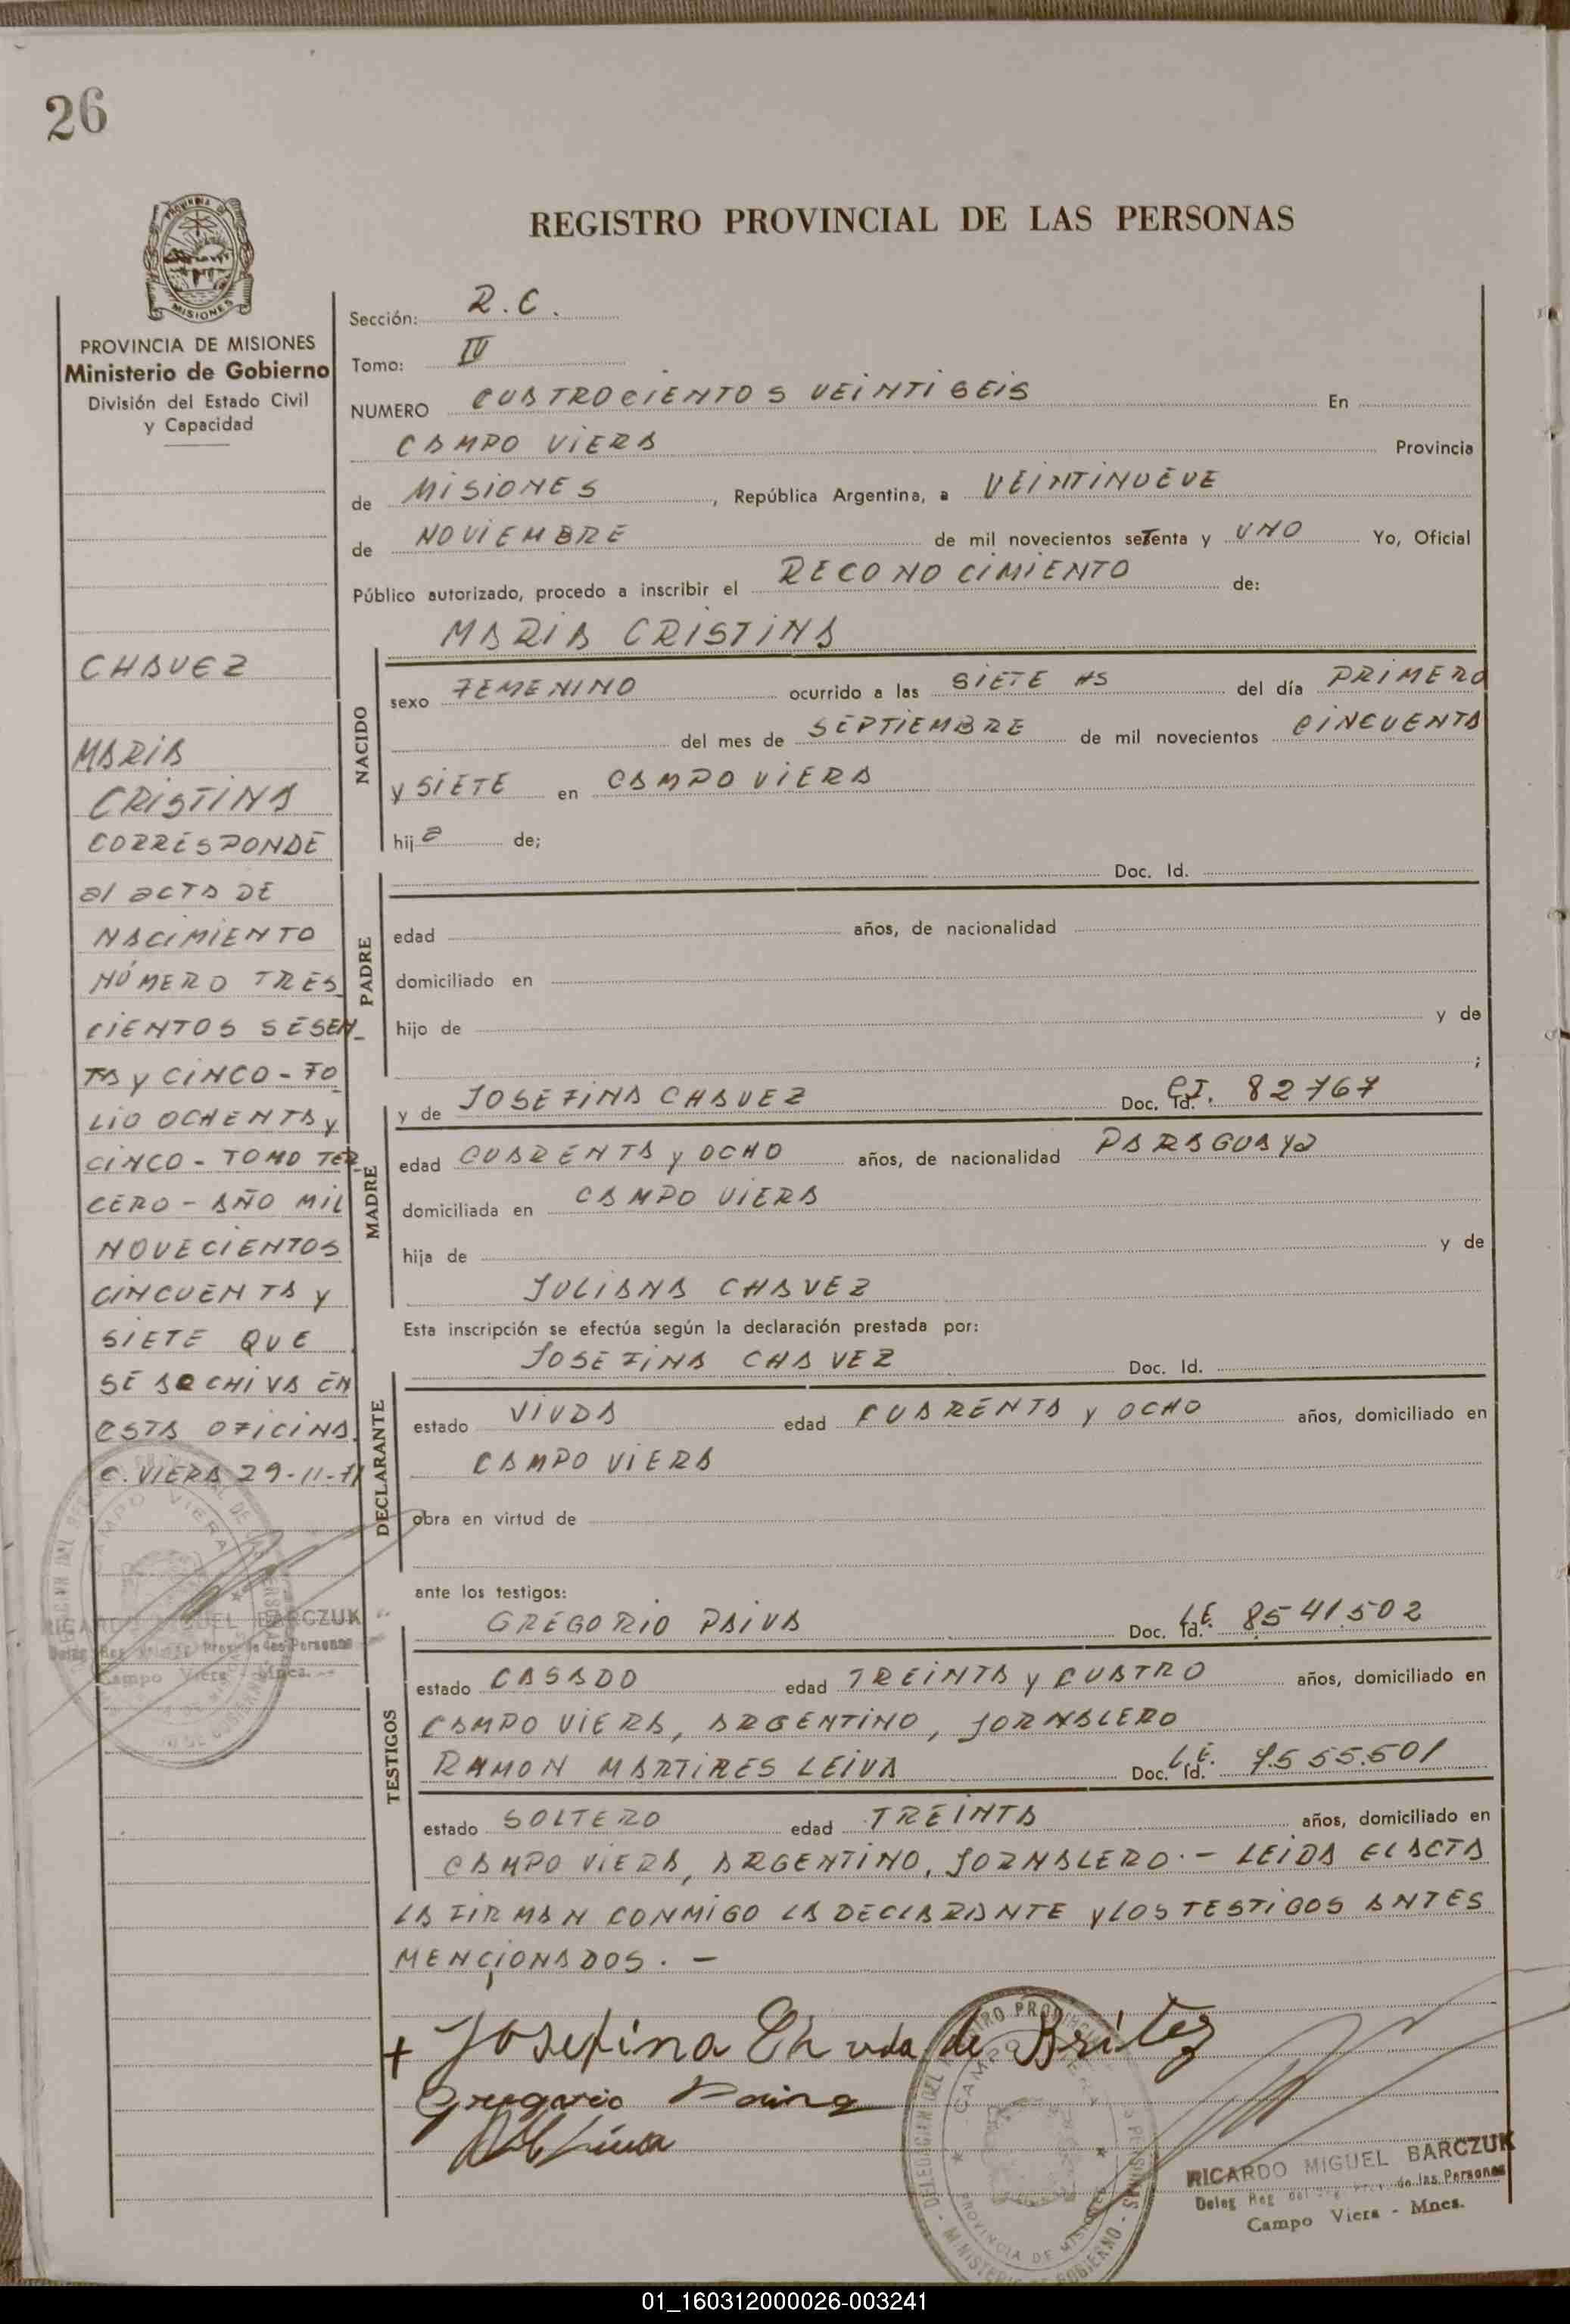 26
REGISTRO PROVINCIAL DE LAS PERSONAS
MISIONES
PROVINCIA DE MISIONES
Ministerio de Gobierno
División del Estado Civil
y Capacidad
CHAVEZ
MARIA
CRISTINA
CORRESPONDE
al acta DE
NACIMIENTO
NÚMERO TRES
CIENTOS SESEN_
TA y CINCO - FO
LIO OCHENTA y
CINCO - TOMO TER
CERO - AÑO MIL
NOVECIENTOS
CINCUENTA y
SIETE QUE
SE ARCHIVA EN
ESTA OFICINA.
C. VIERA 29-11-71
RICARDO MIGUEL BARCZUK
Campo Viera - Mnes.
Sección: R.C.
Tomo: IV
NUMERO CUATROCIENTOS VEINTISEIS En
CAMPO VIERA Provincia
de MISIONES, República Argentina, a VEINTINUEVE
de NOVIEMBRE de mil novecientos seTenta y UNO Yo, Oficial
Público autorizado, procedo a inscribir el RECONOCIMIENTO de:
MARIA CRISTINA
NACIDO
sexo FEMENINO ocurrido a las SIETE HS del día PRIMERO
del mes de SEPTIEMBRE de mil novecientos CINCUENTA
y SIETE en CAMPO VIERA
hija de;
Doc. Id.
PADRE
edad años, de nacionalidad
domiciliado en
hijo de y de
;
MADRE
y de JOSEFINA CHAVEZ Doc. Id. CI. 82767
edad CUARENTA y OCHO años, de nacionalidad PARAGUAYA
domiciliada en CAMPO VIERA
hija de y de
JULIANA CHAVEZ
Esta inscripción se efectúa según la declaración prestada por:
JOSEFINA CHAVEZ Doc. Id.
DECLARANTE
estado VIUDA edad CUARENTA y OCHO años, domiciliado en
CAMPO VIERA
obra en virtud de
ante los testigos:
GREGORIO PAIVA Doc. Id. L.E. 8.541.502
TESTIGOS
estado CASADO edad TREINTA y CUATRO años, domiciliado en
CAMPO VIERA, ARGENTINO, JORNALERO
RAMON MARTIRES LEIVA Doc. Id. L.E. 7.555.501
estado SOLTERO edad TREINTA años, domiciliado en
CAMPO VIERA, ARGENTINO, JORNALERO.- LEIDA EL ACTA
LA FIRMAN CONMIGO LA DECLARANTE y LOS TESTIGOS ANTES
MENCIONADOS. -
+ Josefina Ch vda de Britez
Gregorio Paiva
Leiva
RICARDO MIGUEL BARCZUK
Campo Viera - Mnes.
01_160312000026-003241